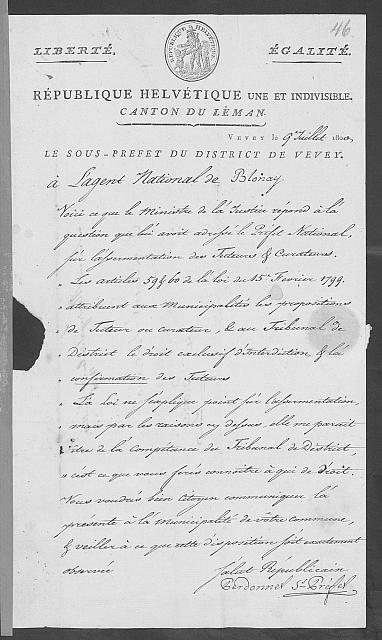 46.
LIBERTÉ.
RÉPUBLIQUE HELVÉTIQUE
ÉGALITÉ.
RÉPUBLIQUE HELVÉTIQUE UNE ET INDIVISIBLE.
CANTON DU LÉMAN.
VEVEY le 9e Juillet 1800
LE SOUS-PREFET DU DISTRICT DE VEVEY,
à L'agent National de Blonay
Voici ce que le Ministre de la Justice répond à la
question que lui avoit adressé le Prefet National
sur l'assermentation des Tuteurs & Curateurs.
" Les articles 59 & 60 de la loi du 15e Février 1799.
" attribuent aux Municipalités les propositions
" de Tuteur ou curateur, & au Tribunal de
" District le droit exclusif d'Interdiction, & la
" confirmation des Tuteurs
" La Loi ne s'explique point sur l'assermentation,
" mais par les raisons cy dessus, elle me parait
" être de la compétance du Tribunal de District,
" c'est ce que vous ferés connoître à qui de Droit.
Vous voudrés bien Citoyen communiquer la
présente à la Municipalité de vôtre commune,
& veiller à ce que cette disposition soit exactement
observée
Salut Républicain
Perdonnet Ss Préfet